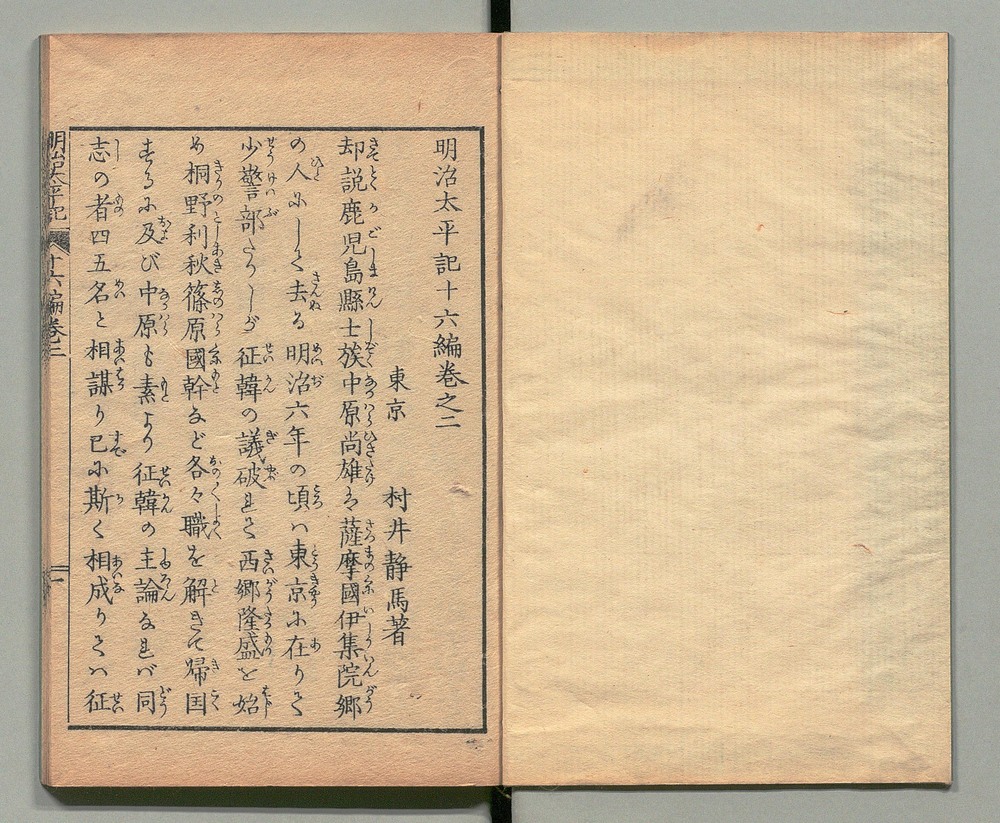 明治太平記十六編巻之二
東京 村井静馬著
却説鹿児島縣士族中原尚雄は薩摩國伊集院郷
の人にして去る明治六年の頃ハ東京に在りて
少警部たりしが征韓の議破れて西郷隆盛を始
め桐野利秋篠原國幹など各々職を解きて帰国
するに及び中原も素より征韓の主論なれバ同
志の者四五名と相謀り已に斯く相成りてハ征
明治太平記 十六編巻二 一